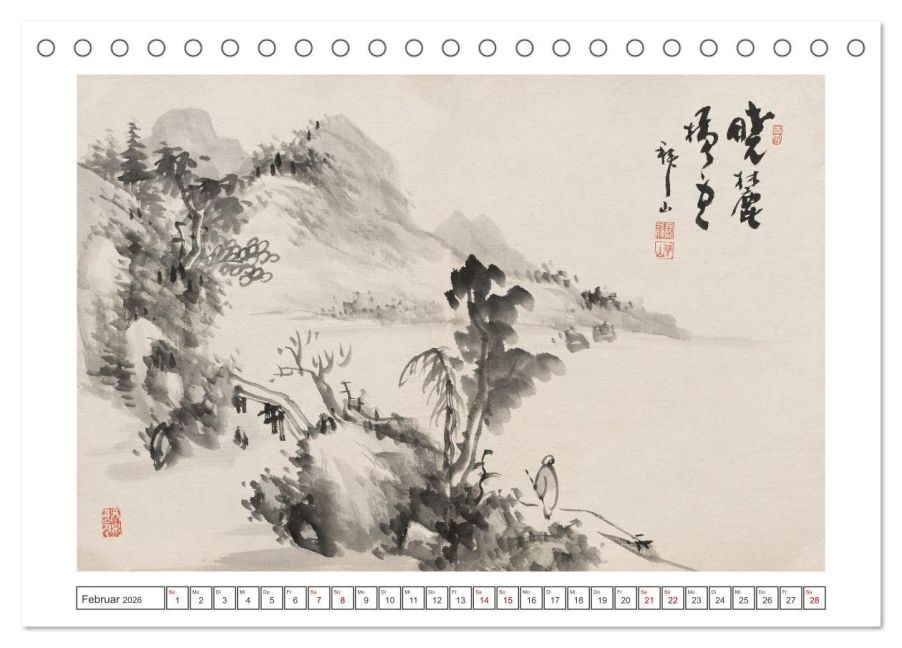 曉麓
Februar 2026 So 1 Mo 2 Di 3 Mi 4 Do 5 Fr 6 Sa 7 So 8 Mo 9 Di 10 Mi 11 Do 12 Fr 13 Sa 14 So 15 Mo 16 Di 17 Mi 18 Do 19 Fr 20 Sa 21 So 22 Mo 23 Di 24 Mi 25 Do 26 Fr 27 Sa 28